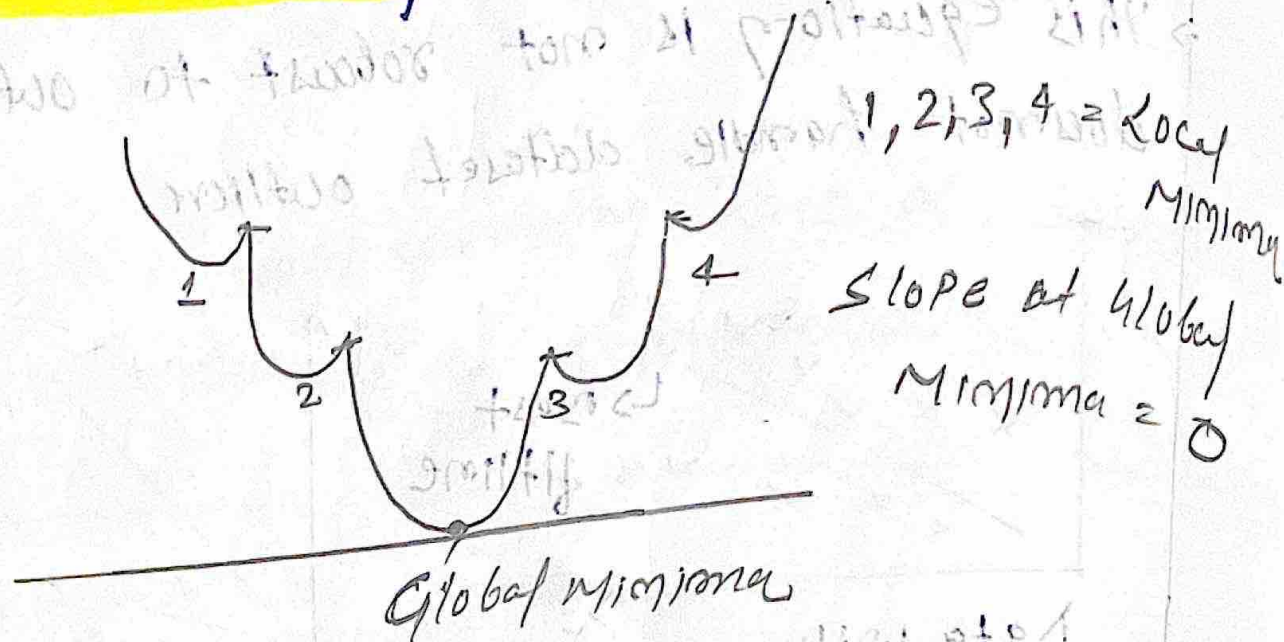 1, 2, 3, 4 = Local
Minima
1
2
3
4
Slope at Global
Minima = 0
Global Minima